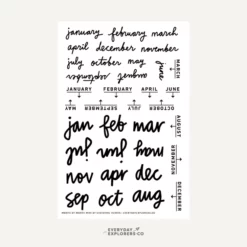 january february march
april december november
july october may june
september august
JANUARY FEBRUARY APRIL JUNE
MARCH
MAY SEPTEMBER JULY OCTOBER
jan feb mar
AUGUST
NOVEMBER
nov apr dec
DECEMBER
sep oct aug
EVERYDAY
EXPLORERS CO